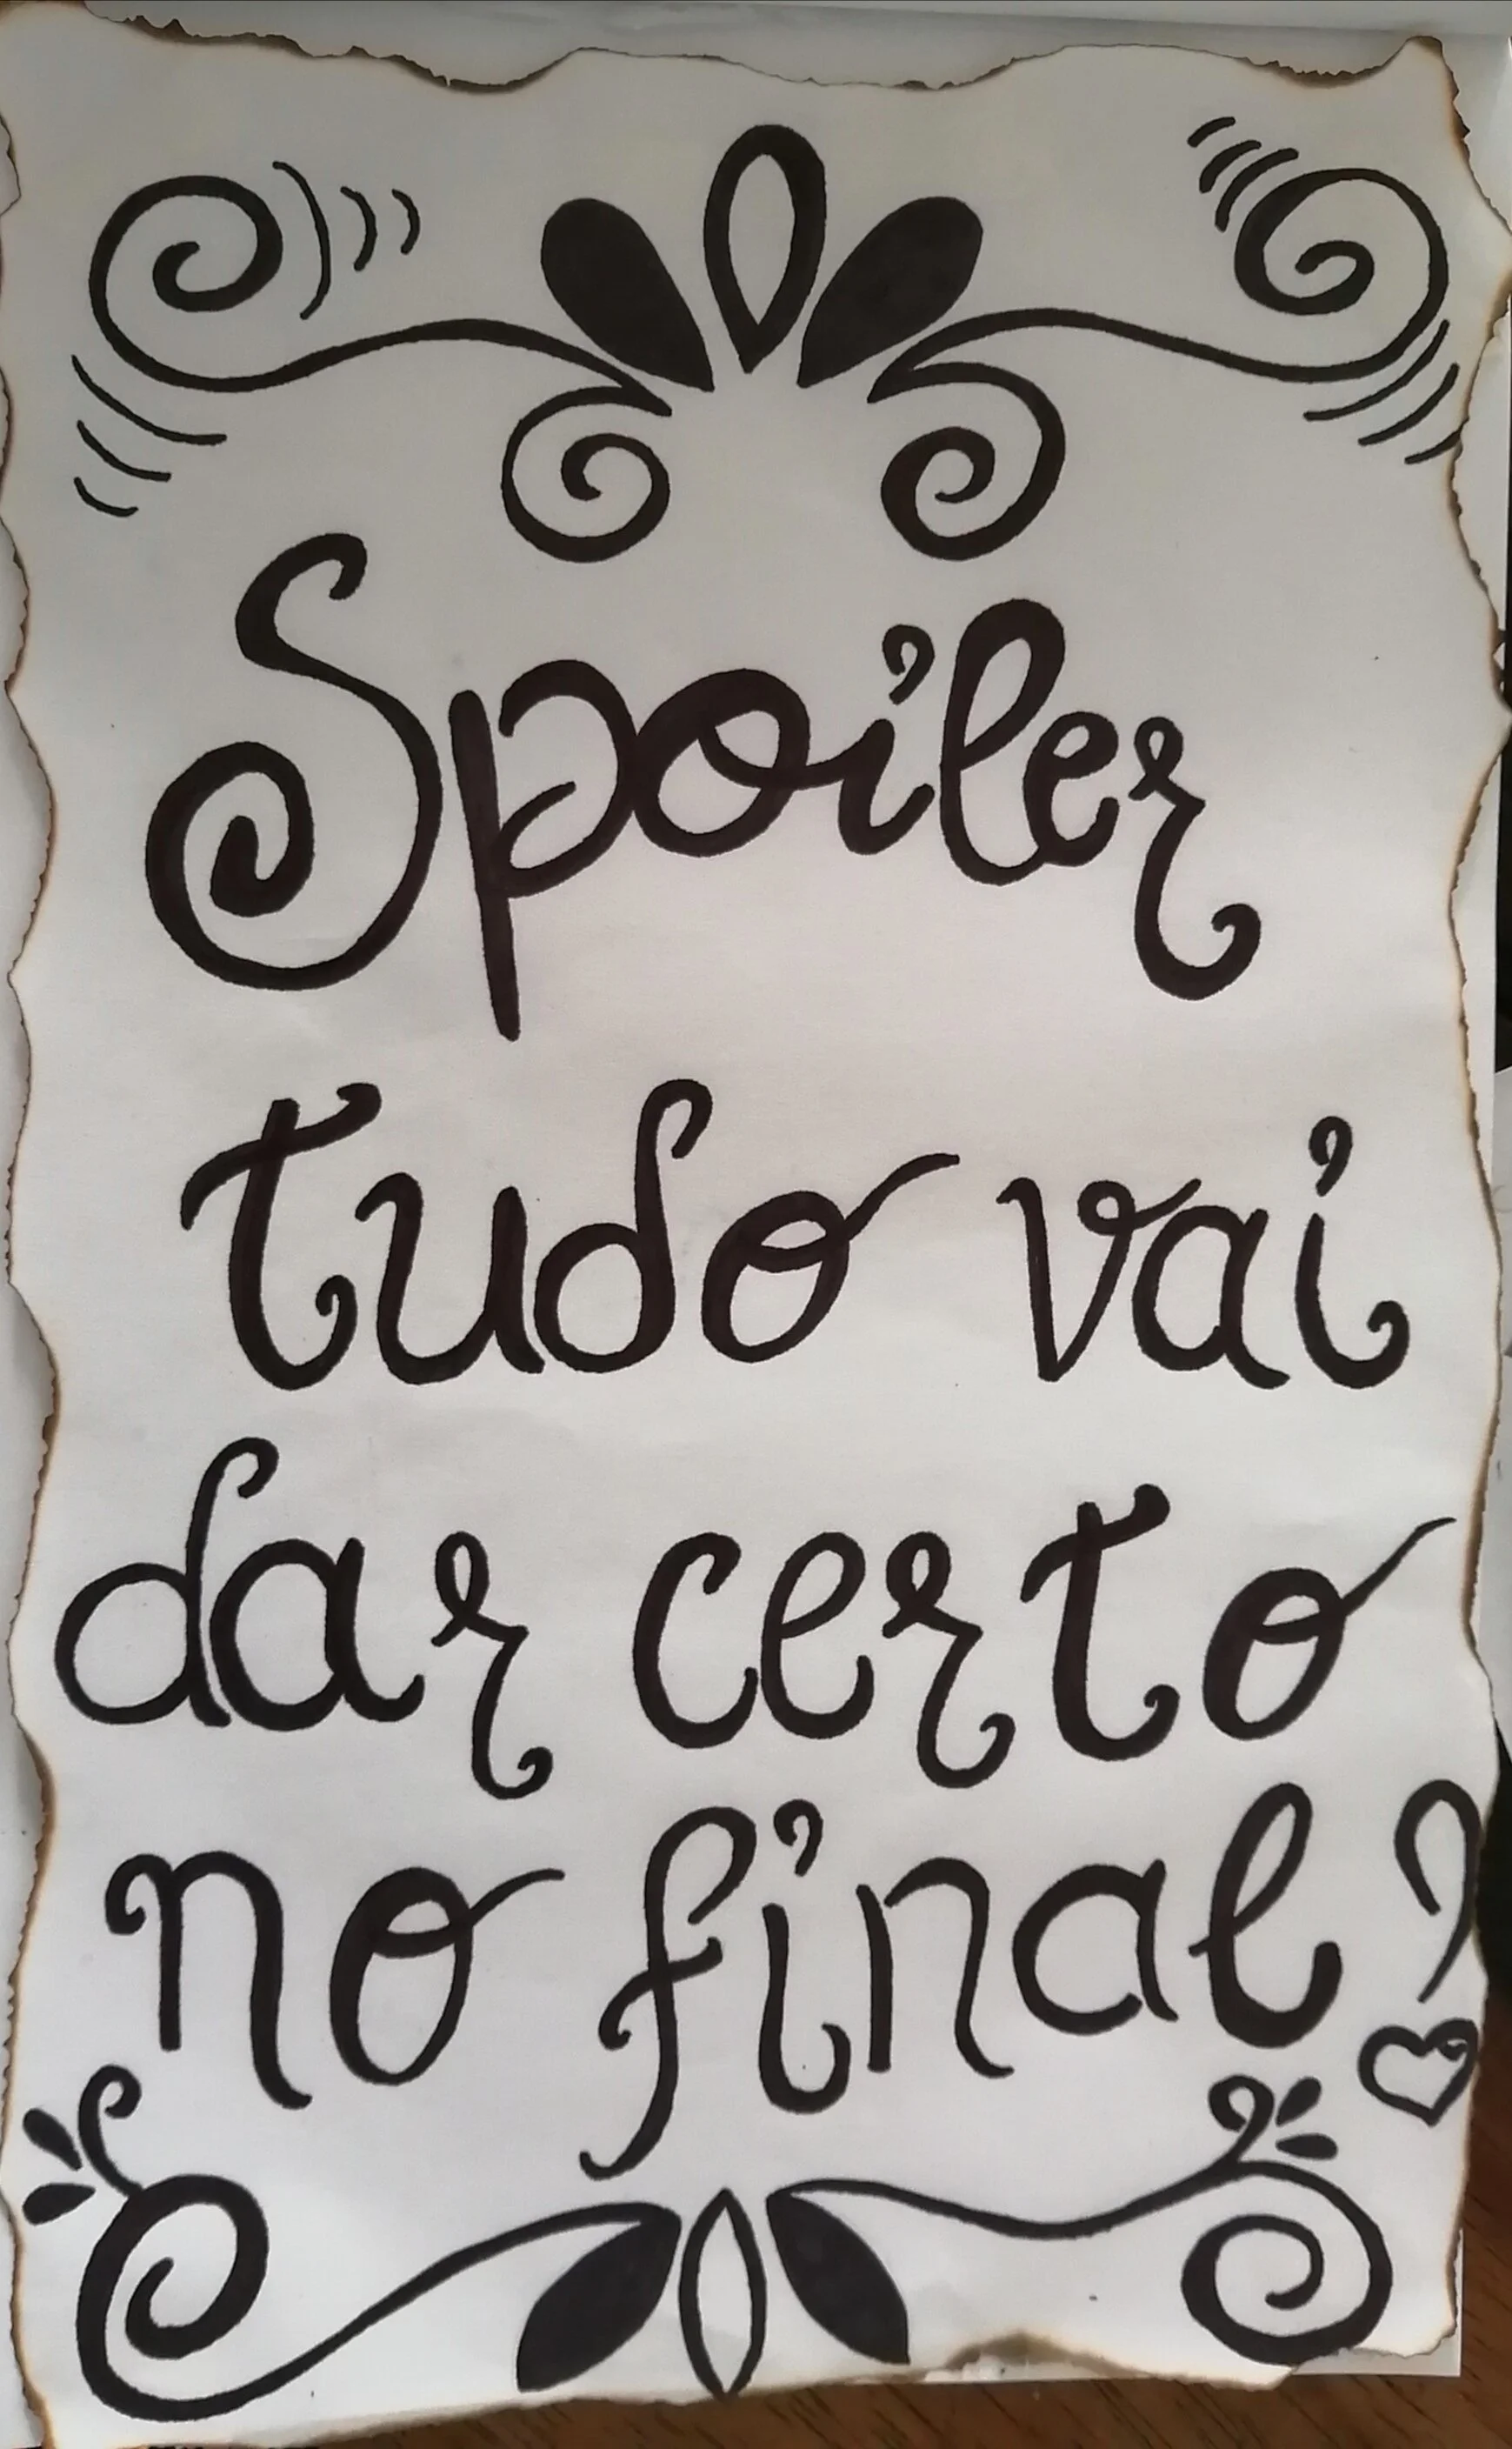 Spoiler
tudo vai
dar certo
no final!